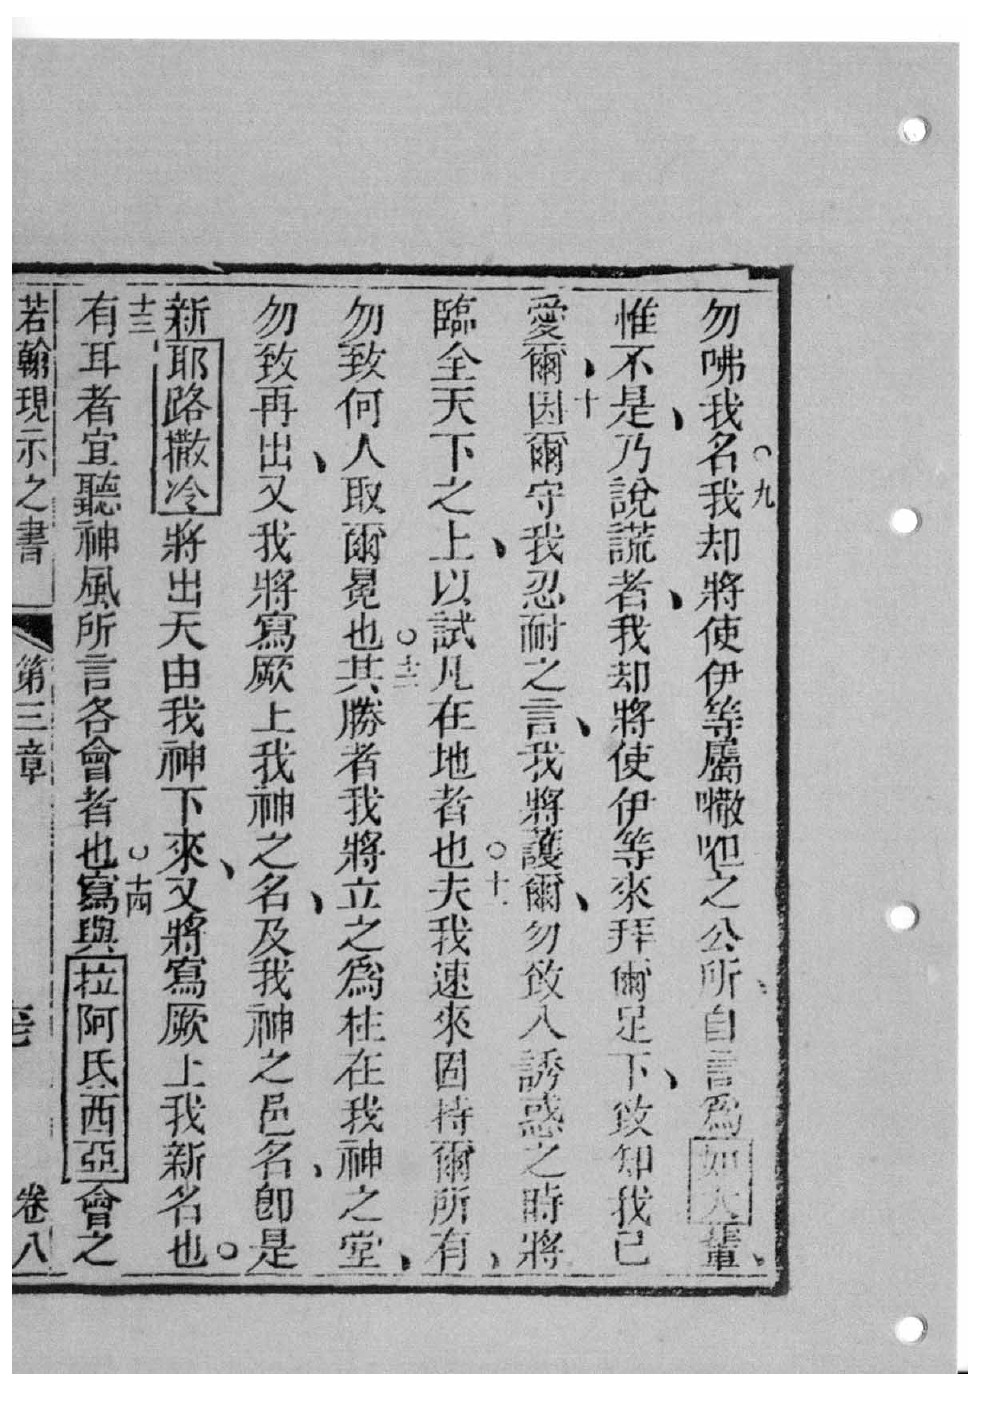 勿咈我名。九我却將使伊等屬㘔呾之公所自言爲如大輩、
惟不是、乃說謊者、我却將使伊等來拜爾足下、致知我已
愛爾、十因爾守我忍耐之言、我將護爾、勿致入誘惑之時將
臨全天下之上、以試凡在地者也。十一夫我速來固持爾所有、
勿致何人取爾冕也。十二其勝者我將立之爲柱在我神之堂、
勿致再出、又我將寫厥上我神之名、及我神之邑名、卽是
新耶路撒冷將出天由我神下來、又將寫厥上我新名也。
十三有耳者宜聽神風所言各會者也。十四寫與拉阿氏西亞會之
若翰現示之書 第三章 卷八